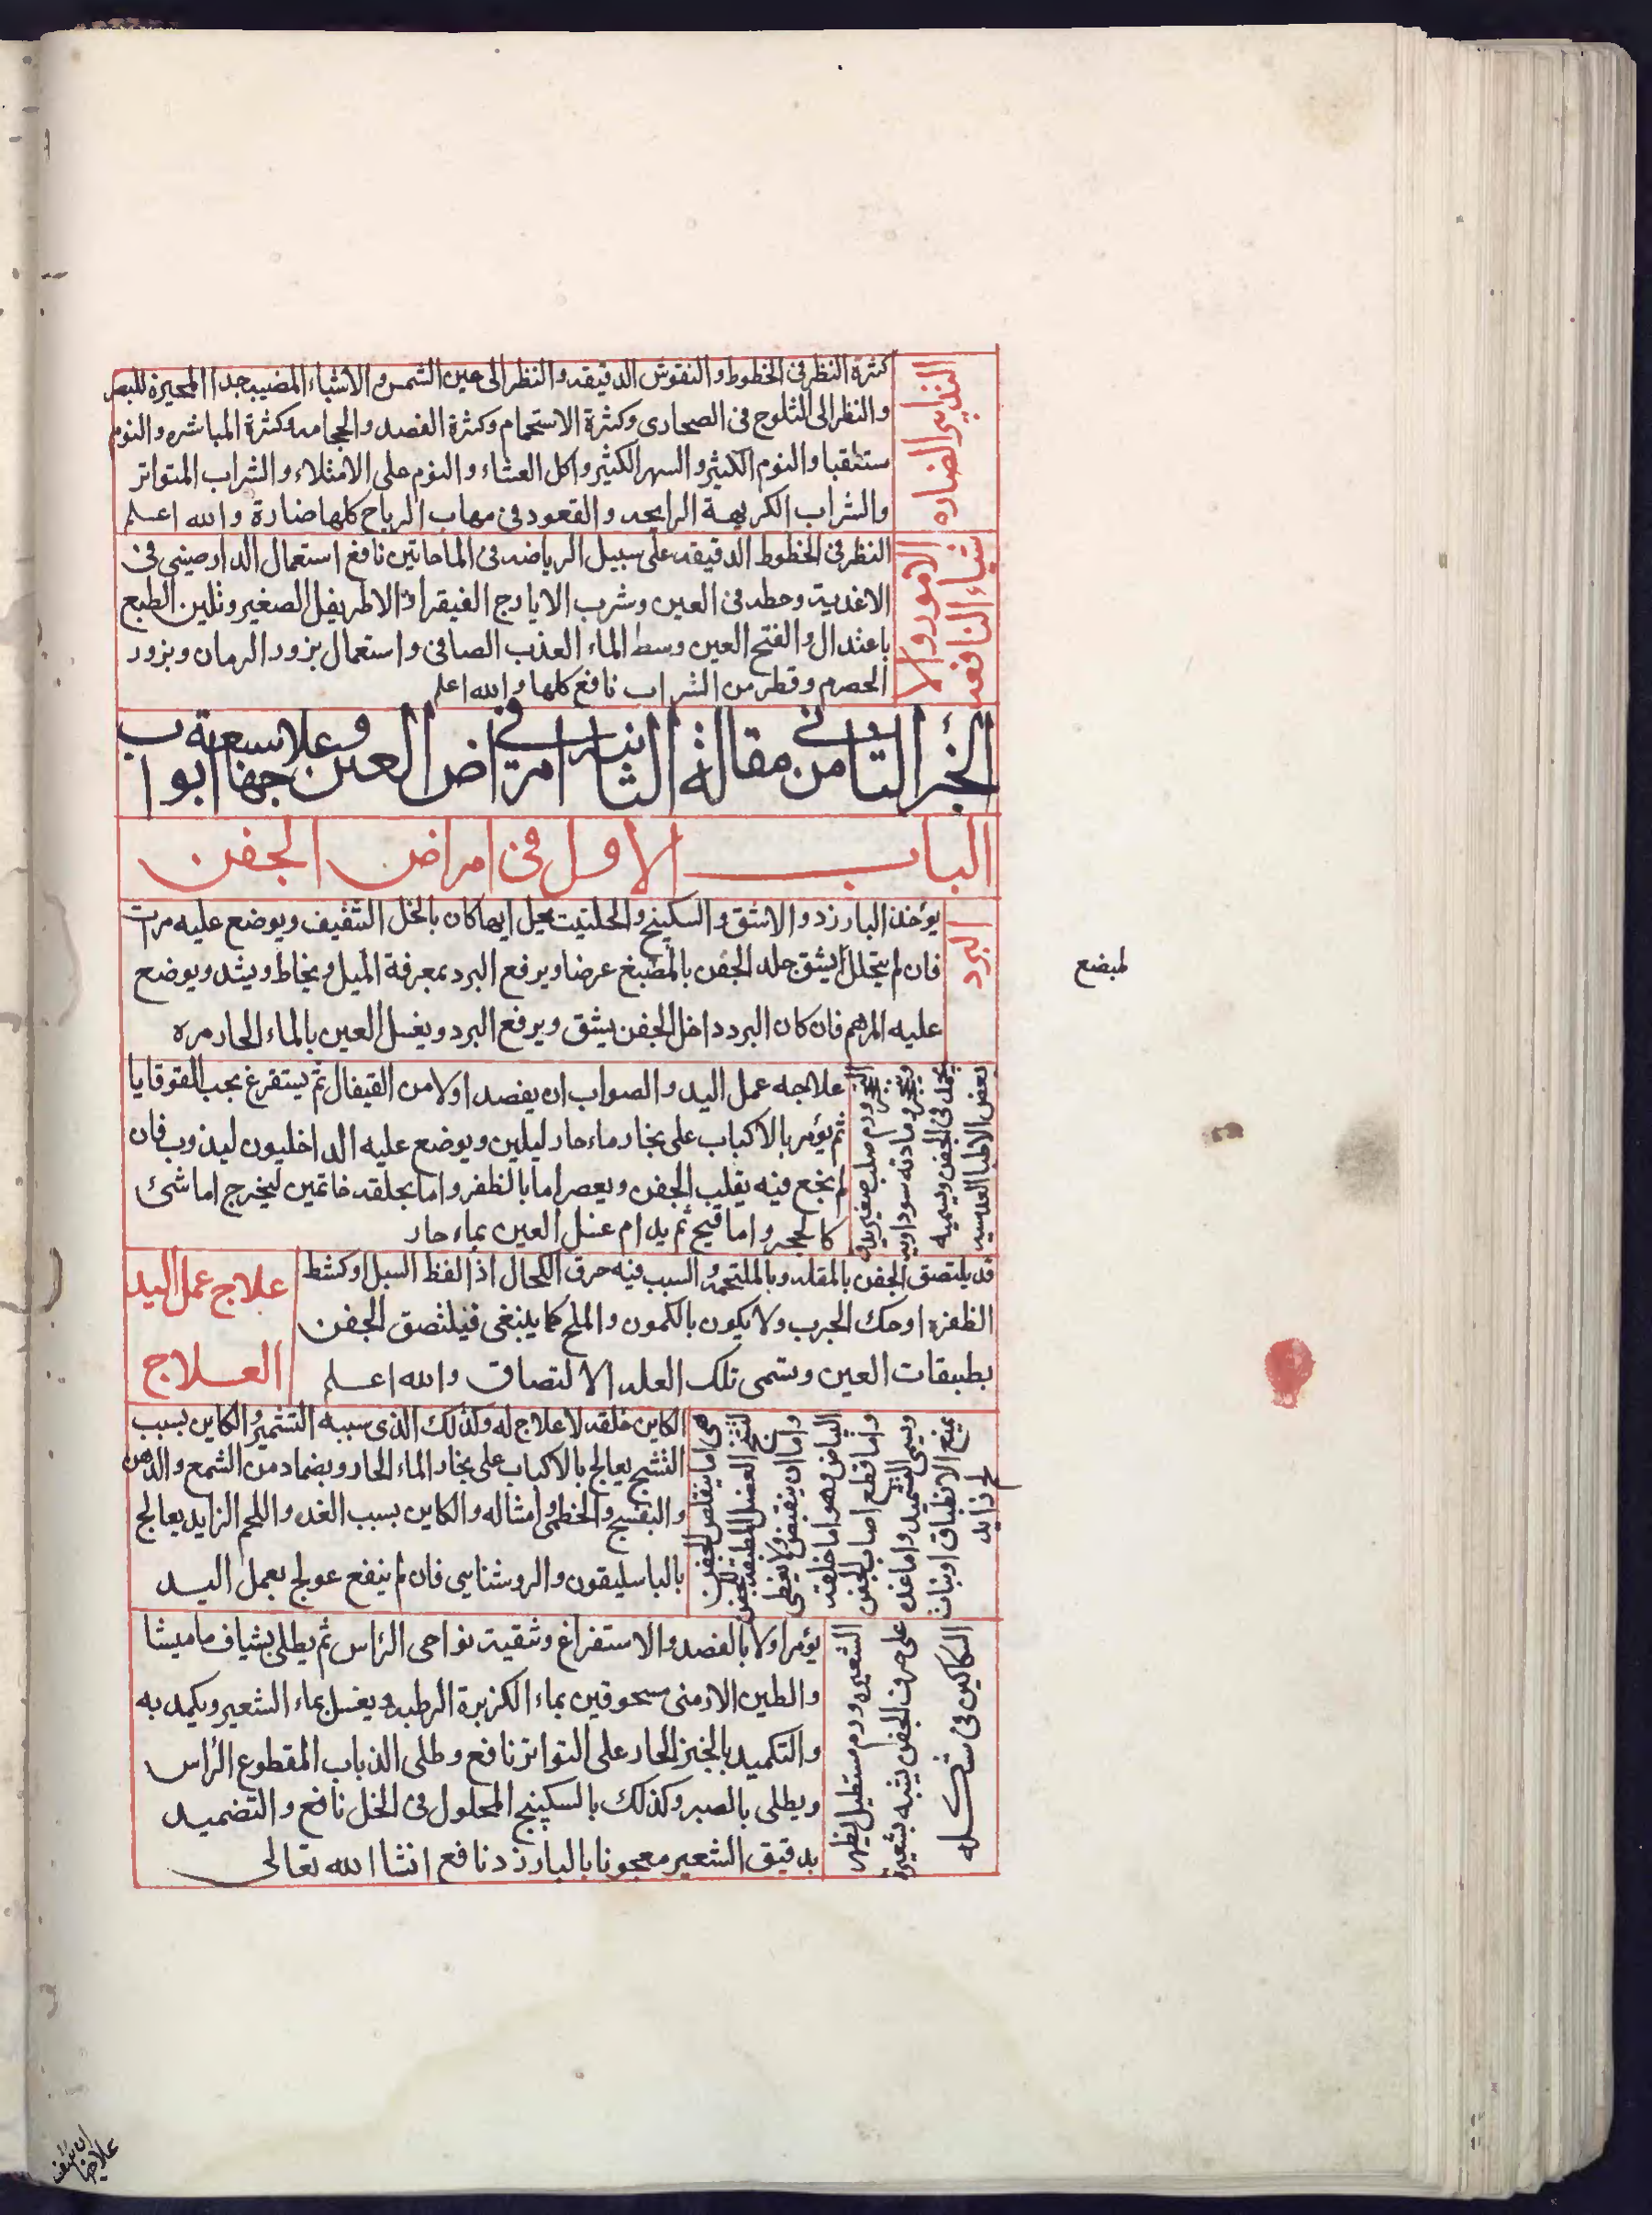 التدابير الضاره
كثرة النظر فى الخطوط و النقوش الدقيقه و النظر الى عين الشمس و الاشياء المضيىه جدا المحيرة للبصر
و النظر الى الثلوج فى الصحارى و كثرة الاستحمام و كثرة الفصد و الحجامه و كثرة المباشره و النوم
مستلقيا و النوم الكثير و السهر الكثير و اكل العشاء و النوم على الامتلاء و الشراب المتواتر
و الشراب الكريهة الرايحه و القعود فى مهاب الرياح كلها ضارة و الله اعلم
الامور و الا
شياء النافعه
النظر فى الخطوط الدقيقه على سبيل الرياضه فى الماحاتين نافع استعمال الدارصينى فى
الاغذية و حطه فى العين و شرب الايارج الفيقرا و الاطريفل الصغير و تليين الطبع
باعتدال و الفتح العين وسط الماء العذب الصافى و استعمال بزور الرمان و بزور
الحصرم و قطر من الشراب نافع كلها و الله اعلم
الجزء الثانى من مقالة الثانية فى امراض العين و علاجها سبعة ابواب
الباب الاول فى امراض الجفن
البرد
يؤخذ البارزد و الاشق و السكبينج و الحلتيت يحل ايها كان بالخل الثقيف و يوضع عليه مرات
فان لم يتحلل يشق جلد الجفن بالمضبغ عرضا و يرفع البرد بمعرفة الميل و يخاط و يشد و يوضع
لمبضع
عليه المرهم فان كان البرد داخل الجفن يشق و يرفع البرد و يغسل العين بالماء الحار مره
التحجر ورم صلب صغير
و يتحجر و مادته سوداويه
يحمل فى الجفن و يسميه
بعض الاطبا العدسيه
علاجه عمل اليد و الصواب ان يفصد اولا من القيفال ثم يستفرغ بحب القوقايا
ثم يؤمر بالاكباب على بخار ماء حار ليلين و يوضع عليه الداخليون ليذوب فان
لم ينجع فيه يقلب الجفن و يعصر اما بالظفر و اما بحلقه خاتمين ليخرج اما شئ
كالحجر و اما قيح ثم يدام غسل العين بماء حار
قد يلتصق الجفن بالمقله و بالملتحمه و السبب فيه حرق الكحال اذا لفظ السبل او كشط
الظفره او حك الجرب و لا يكون بالكمون و الملح كما ينبغى فيلتصق الجفن
بطبقات العين و تسمى تلك العله الالتصاق و الله اعلم
علاج عمل اليد
العلاج
هى اما يتقلص الجفن
لتشنج العضل المطبقه للجفن
و اما ان ينقبض و لا يغطى
البياض و هو اما خلقه
و اما قطع اصاب الجفن
و يسمى التشميد و اما غده
يمنع الانطباق او نبات
لحم زايد
الكاين خلقه لا علاج له و كذلك الذى سببه التشمير و الكاين بسبب
التشنج يعالج بالاكباب على بخار الماء الحار و بضماد من الشمع و الدهن
و البنفسج و الخطمى و امثاله و الكاين بسبب الغده و اللحم الزايد يعالج
بالباسليقون و الروشنايى فان لم ينفع عولج بعمل اليد
الشعيره ورم مستطيل يظهر
على حرف الجفن يشبه بشعيرة
السكاكين فى شكله
يؤمر اولا بالفصد و الاستفراغ و تنقية نواحى الرأس ثم يطلى بشياف ماميثا
و الطين الارمنى مسحوقين بماء الكزبرة الرطبه و يغسل بماء الشعير و يكمد به
و التكميد بالخبز الحار على التواتر نافع و طلى الذباب المقطوع الرأس
و يطلى بالصبر و كذلك بالسكبينج المحلول فى الخل نافع و التضميد
بدقيق الشعير معجونا بالبارزد نافع انشا الله تعالى